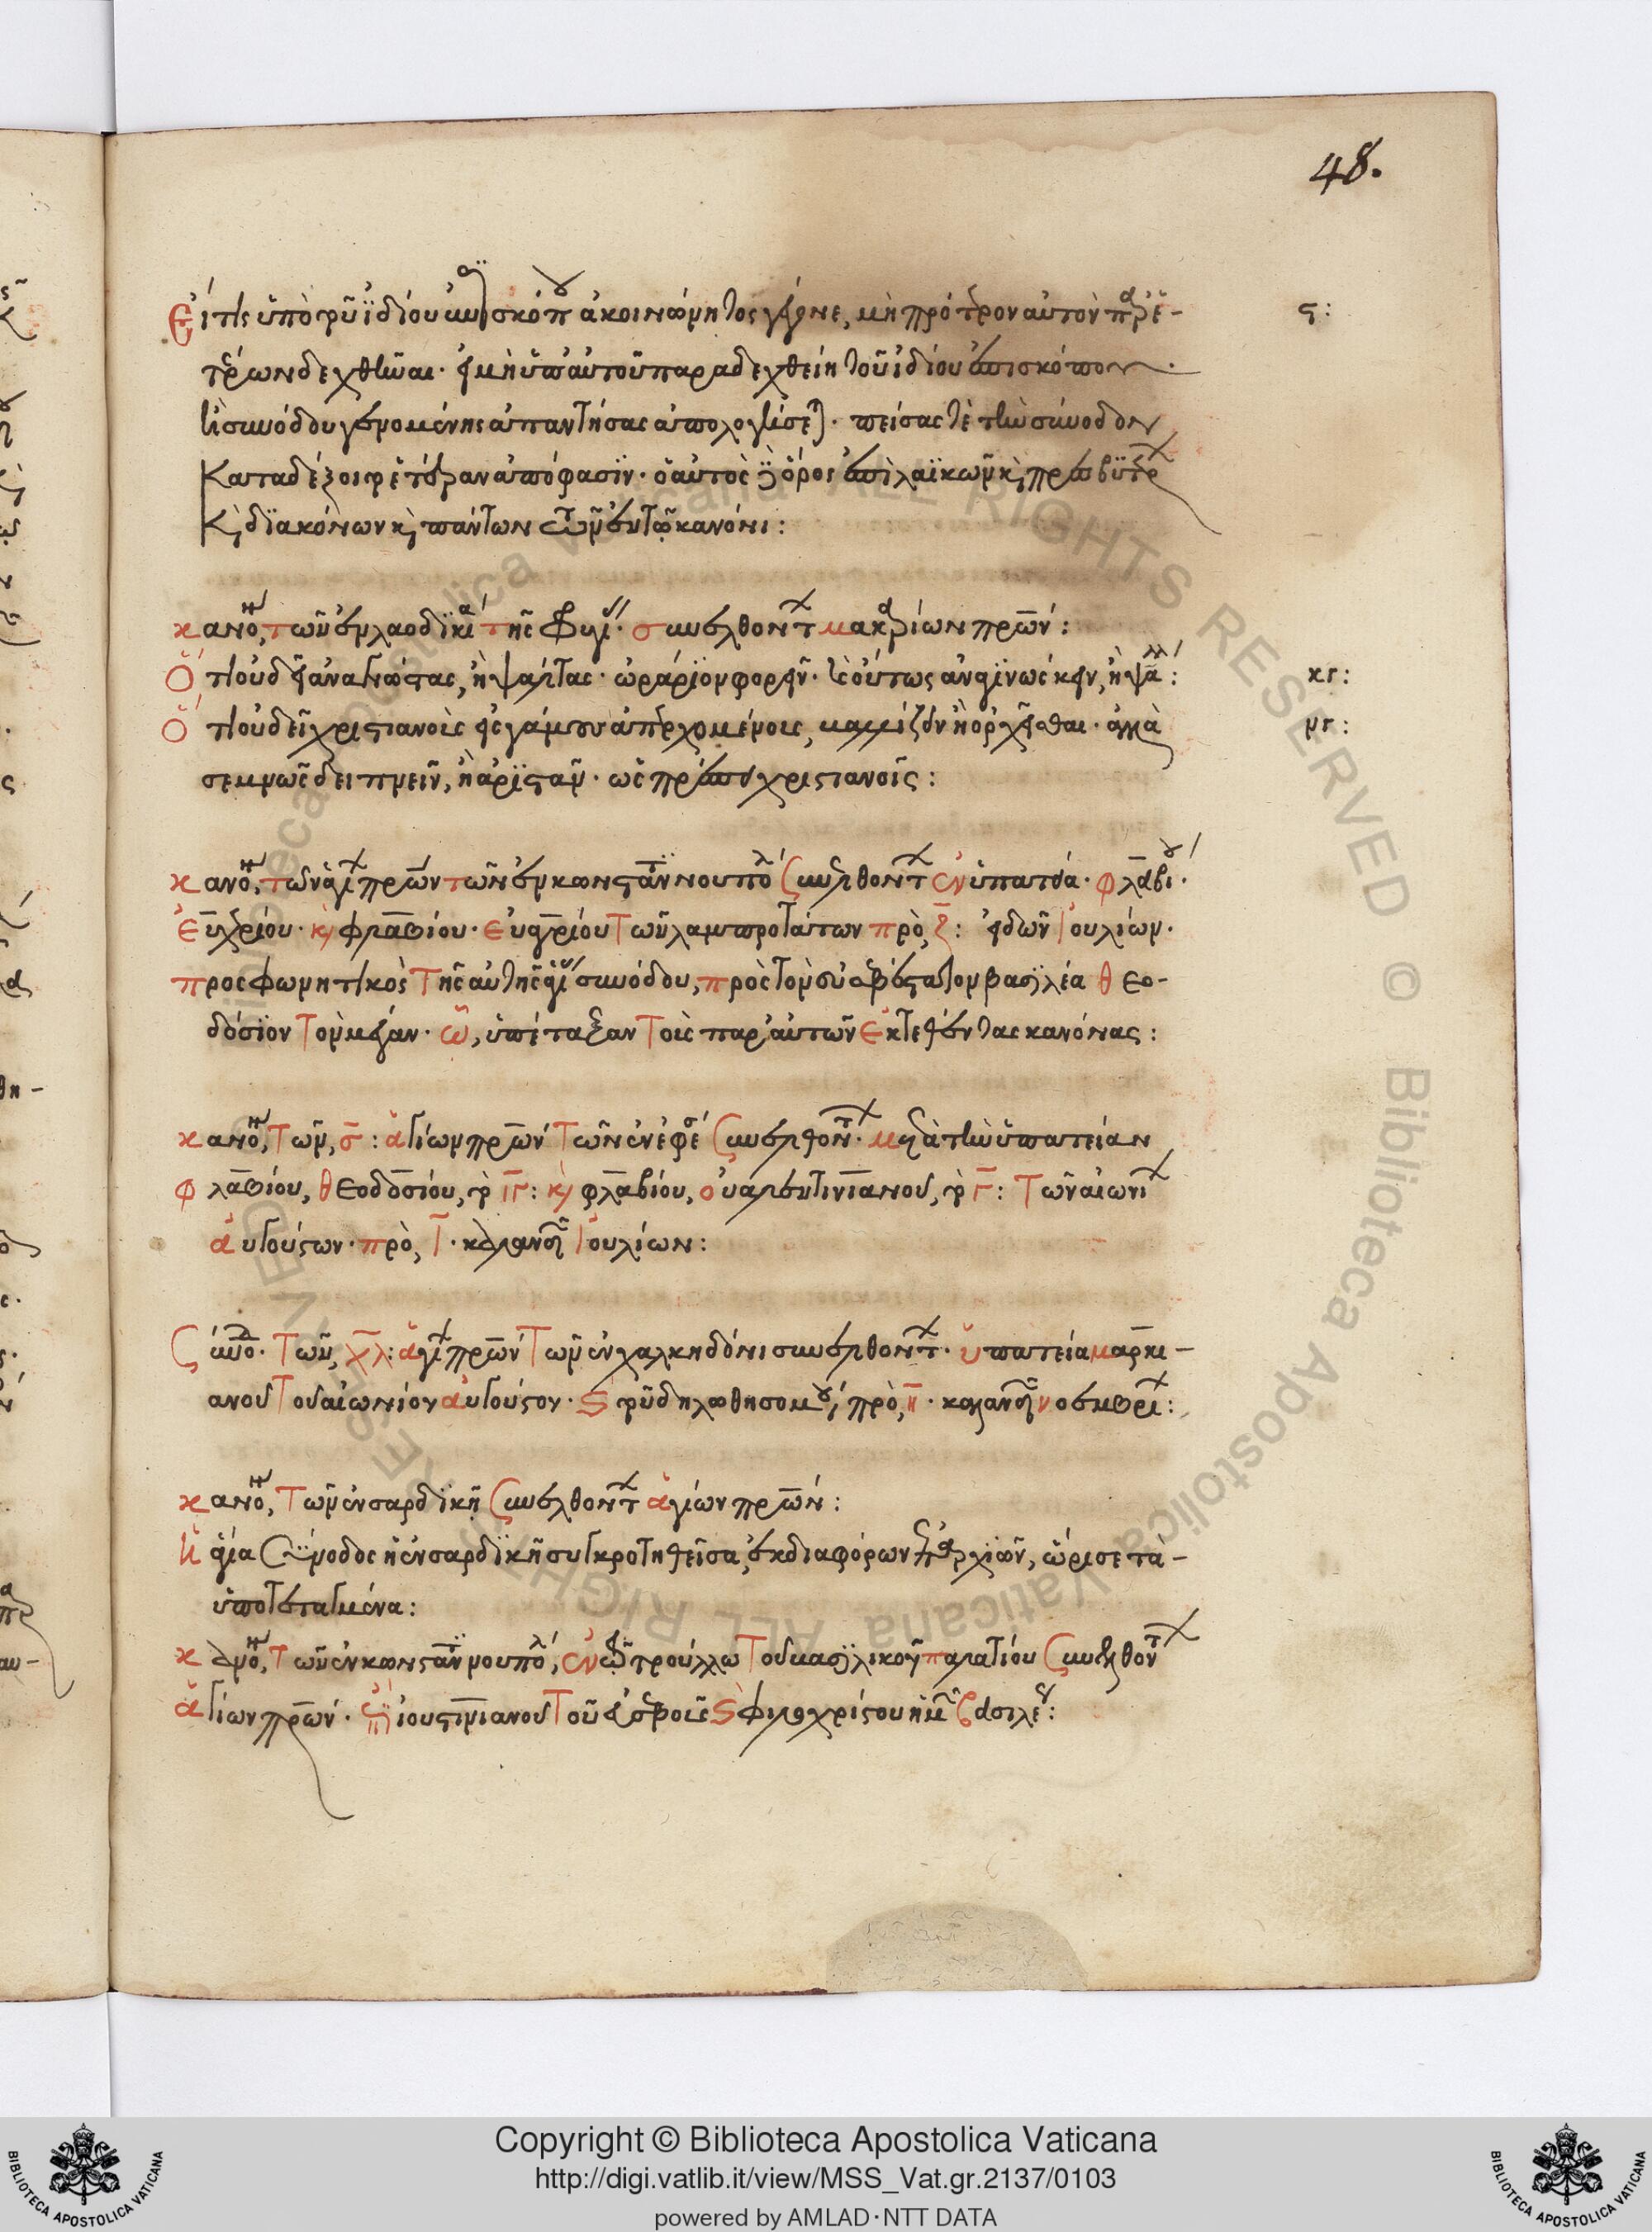 48.
Εἴ τις ὑπὸ τοῦ ἰδίου ἐπισκόπου ἀκοινώνητος γέγονε, μὴ πρότερον αὐτὸν παρ' ἑ- ϛ:
τέρων δεχθῆναι· εἰ μὴ ὑπ' αὐτοῦ παραδεχθείη τοῦ ἰδίου ἐπισκόπου·
ἢ συνόδου γενομένης ἀπαντήσας ἀπολογήσεται· πείσας τὲ τὴν σύνοδον
καταδέξοιτο ἑτέραν ἀπόφασιν· ὁ αὐτὸς δὲ ὅρος ἐπὶ λαϊκῶν κ πρεσβυτέρων
κ διακόνων κ πάντων τῶν ἐν τῷ κανόνι:
κανόνες τῶν ἐν λαοδικίᾳ τῆς φρυγίας συνελθόντων μακαρίων πατέρων:
Ὅτι οὐ δεῖ ἀναγνώστας, ἢ ψάλτας· ὠράριον φορεῖν· κ οὕτως ἀναγινώσκειν, ἢ ψάλλειν: κγ:
Ὅτι οὐ δεῖ χριστιανοὺς εἰς γάμους ἀπερχομένους, βαλλίζειν ἢ ὀρχεῖσθαι· ἀλλὰ νγ:
σεμνῶς δειπνεῖν, ἢ ἀριστᾶν· ὡς πρέπει χριστιανοῖς:
κανόνες τῶν ἁγίων πατέρων τῶν ἐν κωνσταντινουπόλει συνελθόντων ἐν ὑπατείᾳ· φλαβίου·
εὐχερίου· κ φλαβίου· εὐαγρίου τῶν λαμπροτάτων πρὸ, ζ: εἰδῶν ἰουλίων·
προσφωνητικὸς τῆς αὐτῆς ἁγίας συνόδου, πρὸς τὸν εὐσεβέστατον βασιλέα θεο-
δόσιον τὸν μέγαν· ᾧ, ὑπέταξαν τοὺς παρ' αὐτῶν ἐκτεθέντας κανόνας:
κανόνες τῶν, σ: ἁγίων πατέρων τῶν ἐν ἐφέσῳ συνελθόντων· μετὰ τὴν ὑπατείαν
φλαβίου, θεοδοσίου, τὸ ιγ: κ φλαβίου, οὐαλεντινιανοῦ, τὸ γ: τῶν αἰωνίων
αὐγούστων· πρὸ, ι· καλανδῶν ἰουλίων:
Σύνοδος τῶν, χλ: ἁγίων πατέρων τῶν ἐν χαλκηδόνι συνελθόντων· ὑπατείᾳ μαρκι-
ανοῦ τοῦ αἰωνίου αὐγούστου· κ τοῦ δηλωθησομένου, πρὸ, η· καλανδῶν νοεμβρίων:
κανόνες τῶν ἐν σαρδικῇ συνελθόντων ἁγίων πατέρων:
Ἡ ἁγία σύνοδος ἡ ἐν σαρδικῇ συγκροτηθεῖσα, ἐκ διαφόρων ἐπαρχιῶν, ὥρισε τὰ-
ὑποτεταγμένα:
κανόνες τῶν ἐν κωνσταντινουπόλει, ἐν τῷ τρούλλω τοῦ βασιλικοῦ παλατίου συνελθόντων
ἁγίων πατέρων· ἐπὶ ἰουστινιανοῦ τοῦ εὐσεβοῦς κ φιλοχρίστου ἡμῶν βασιλέως:
Copyright © Biblioteca Apostolica Vaticana
http://digi.vatlib.it/view/MSS_Vat.gr.2137/0103
powered by AMLAD·NTT DATA